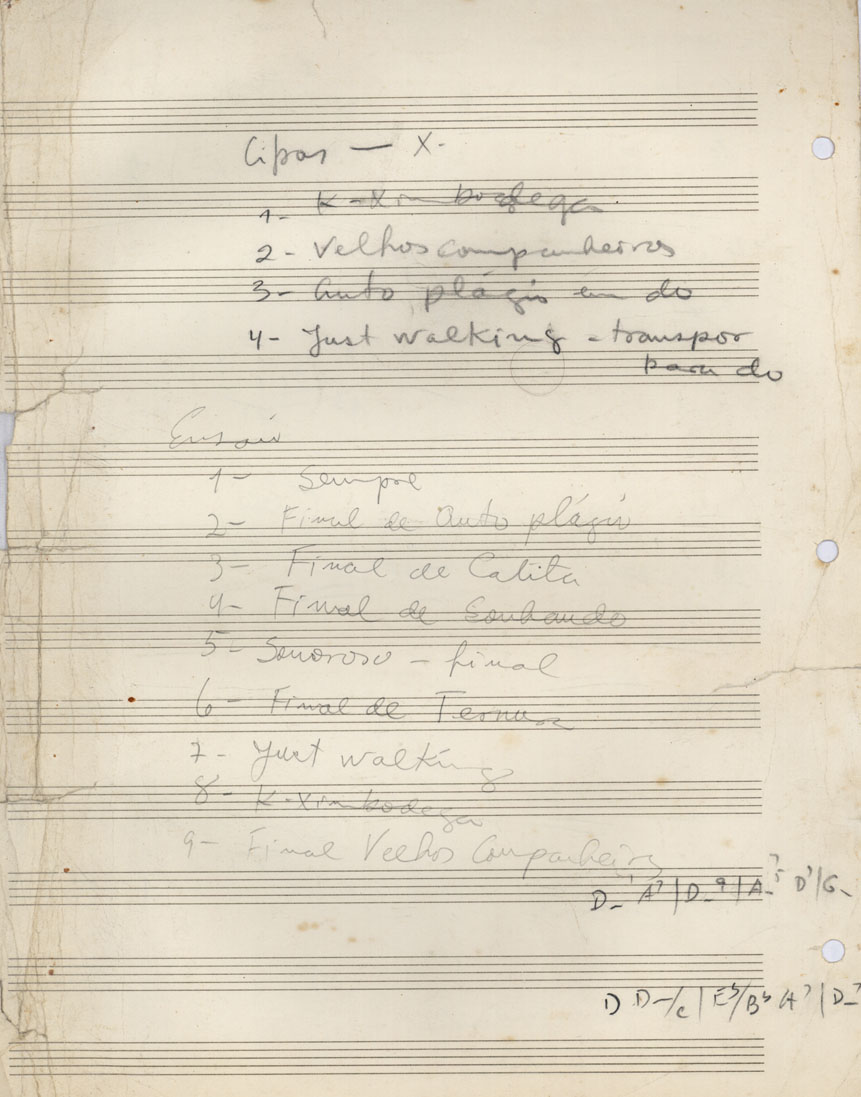 Cipos — X.
1- K-Ximbodega
2- Velhos companheiros
3- Auto plágio em do
4- Just walking - transpor
para do
Ensaio
1- Sempre
2- Final de Auto plágio
3- Final de Catita
4- Final de Sonhando
5- Sonoroso - final
6- Final de Ternura
7- Just walking
8- K-Ximbodega
9- Final Velhos Companheiros
D- A7 | D-9 | D7 | G-
D D-/C | Eb/Bb A7 | D-7